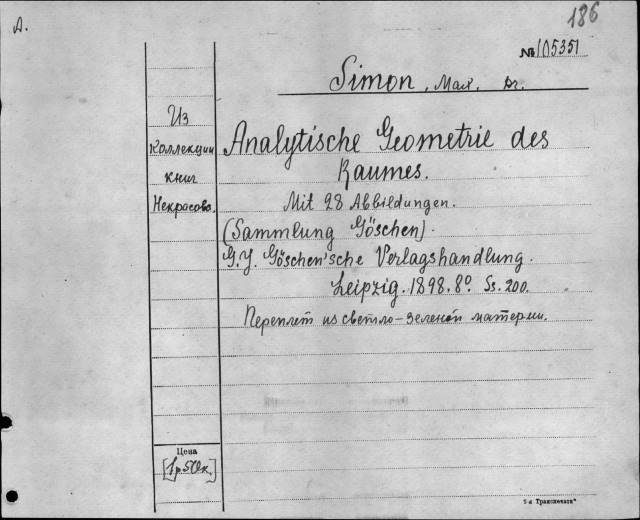 A.
186
№ 105351
Simon, Max, Dr.
Из
коллекции
книг
Некрасова.
Analytische Geometrie des
Raumes.
Mit 28 Abbildungen.
(Sammlung Göschen).
G.J. Göschen'sche Verlagshandlung.
Leipzig. 1898. 8° Ss. 200.
Переплет из светло-зеленой материи.
Цена
[1р.50к.]